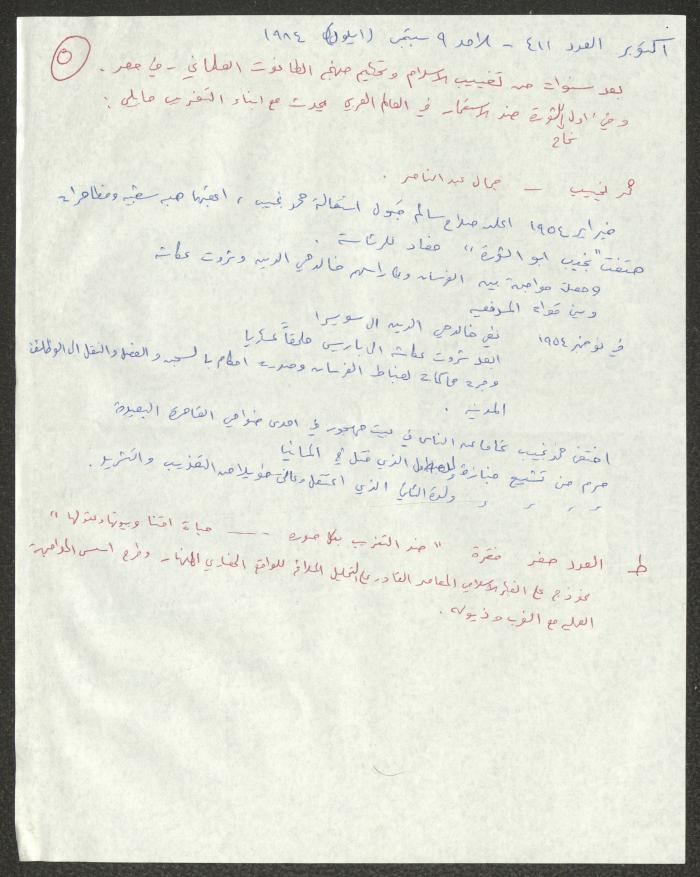 ٥
أكتوبر العدد ٤١١ - الأحد ٩ سبتمبر (ايلول) ١٩٨٤
بعد سنوات من تغييب الاسلام وتحكيم منهج الطاغوت العلماني - في مصر .
وفي اول الثورة ضد الاستعمار في العالم العربي يحدث مع ابناء الشعب مايلي :
نجاح
محمد نجيب — جمال عبد الناصر .
فبراير ١٩٥٤ اعلن صلاح سالم قبول استقالة محمد نجيب ، اعقبها هبه شعبيه ومظاهرات
هتفت "نجيب ابو الثورة" فعاد للرئاسة .
وحصلت مواجهة بين الفرسان وعلى رأسهم خالد محي الدين وثروت عكاشه
وبين قوات المدفعيه
في نوفمبر ١٩٥٤ نفي خالد محي الدين الى سويسرا
ابعد ثروت عكاشه الى باريس ملحقاً عسكريا
وجرت محاكمات لضباط الفرسان وصدرت احكام بالسجن والفصل والنقل الى الوظائف
المدنيه .
اختفى محمد نجيب تماما عن الناس في بيت مهجور في احدى ضواحي القاهرة البعيدة
حرم من تشييع جنازة ولده الاول الذي قتل في المانيا
" " " " ولده الثاني الذي اعتقل وعانى طويلا من التعذيب والتشريد .
ط العدد صفر فقرة "ضد التغريب بكل صوره — حياة امتنا وبيوتها وعقولها"
نموذج على الفكر الاسلامي المعاصر القادر على التحليل العلاقي للواقع الحضاري المنهار وطرح اسس المواجهة
العمليه مع الغرب وذيوله .